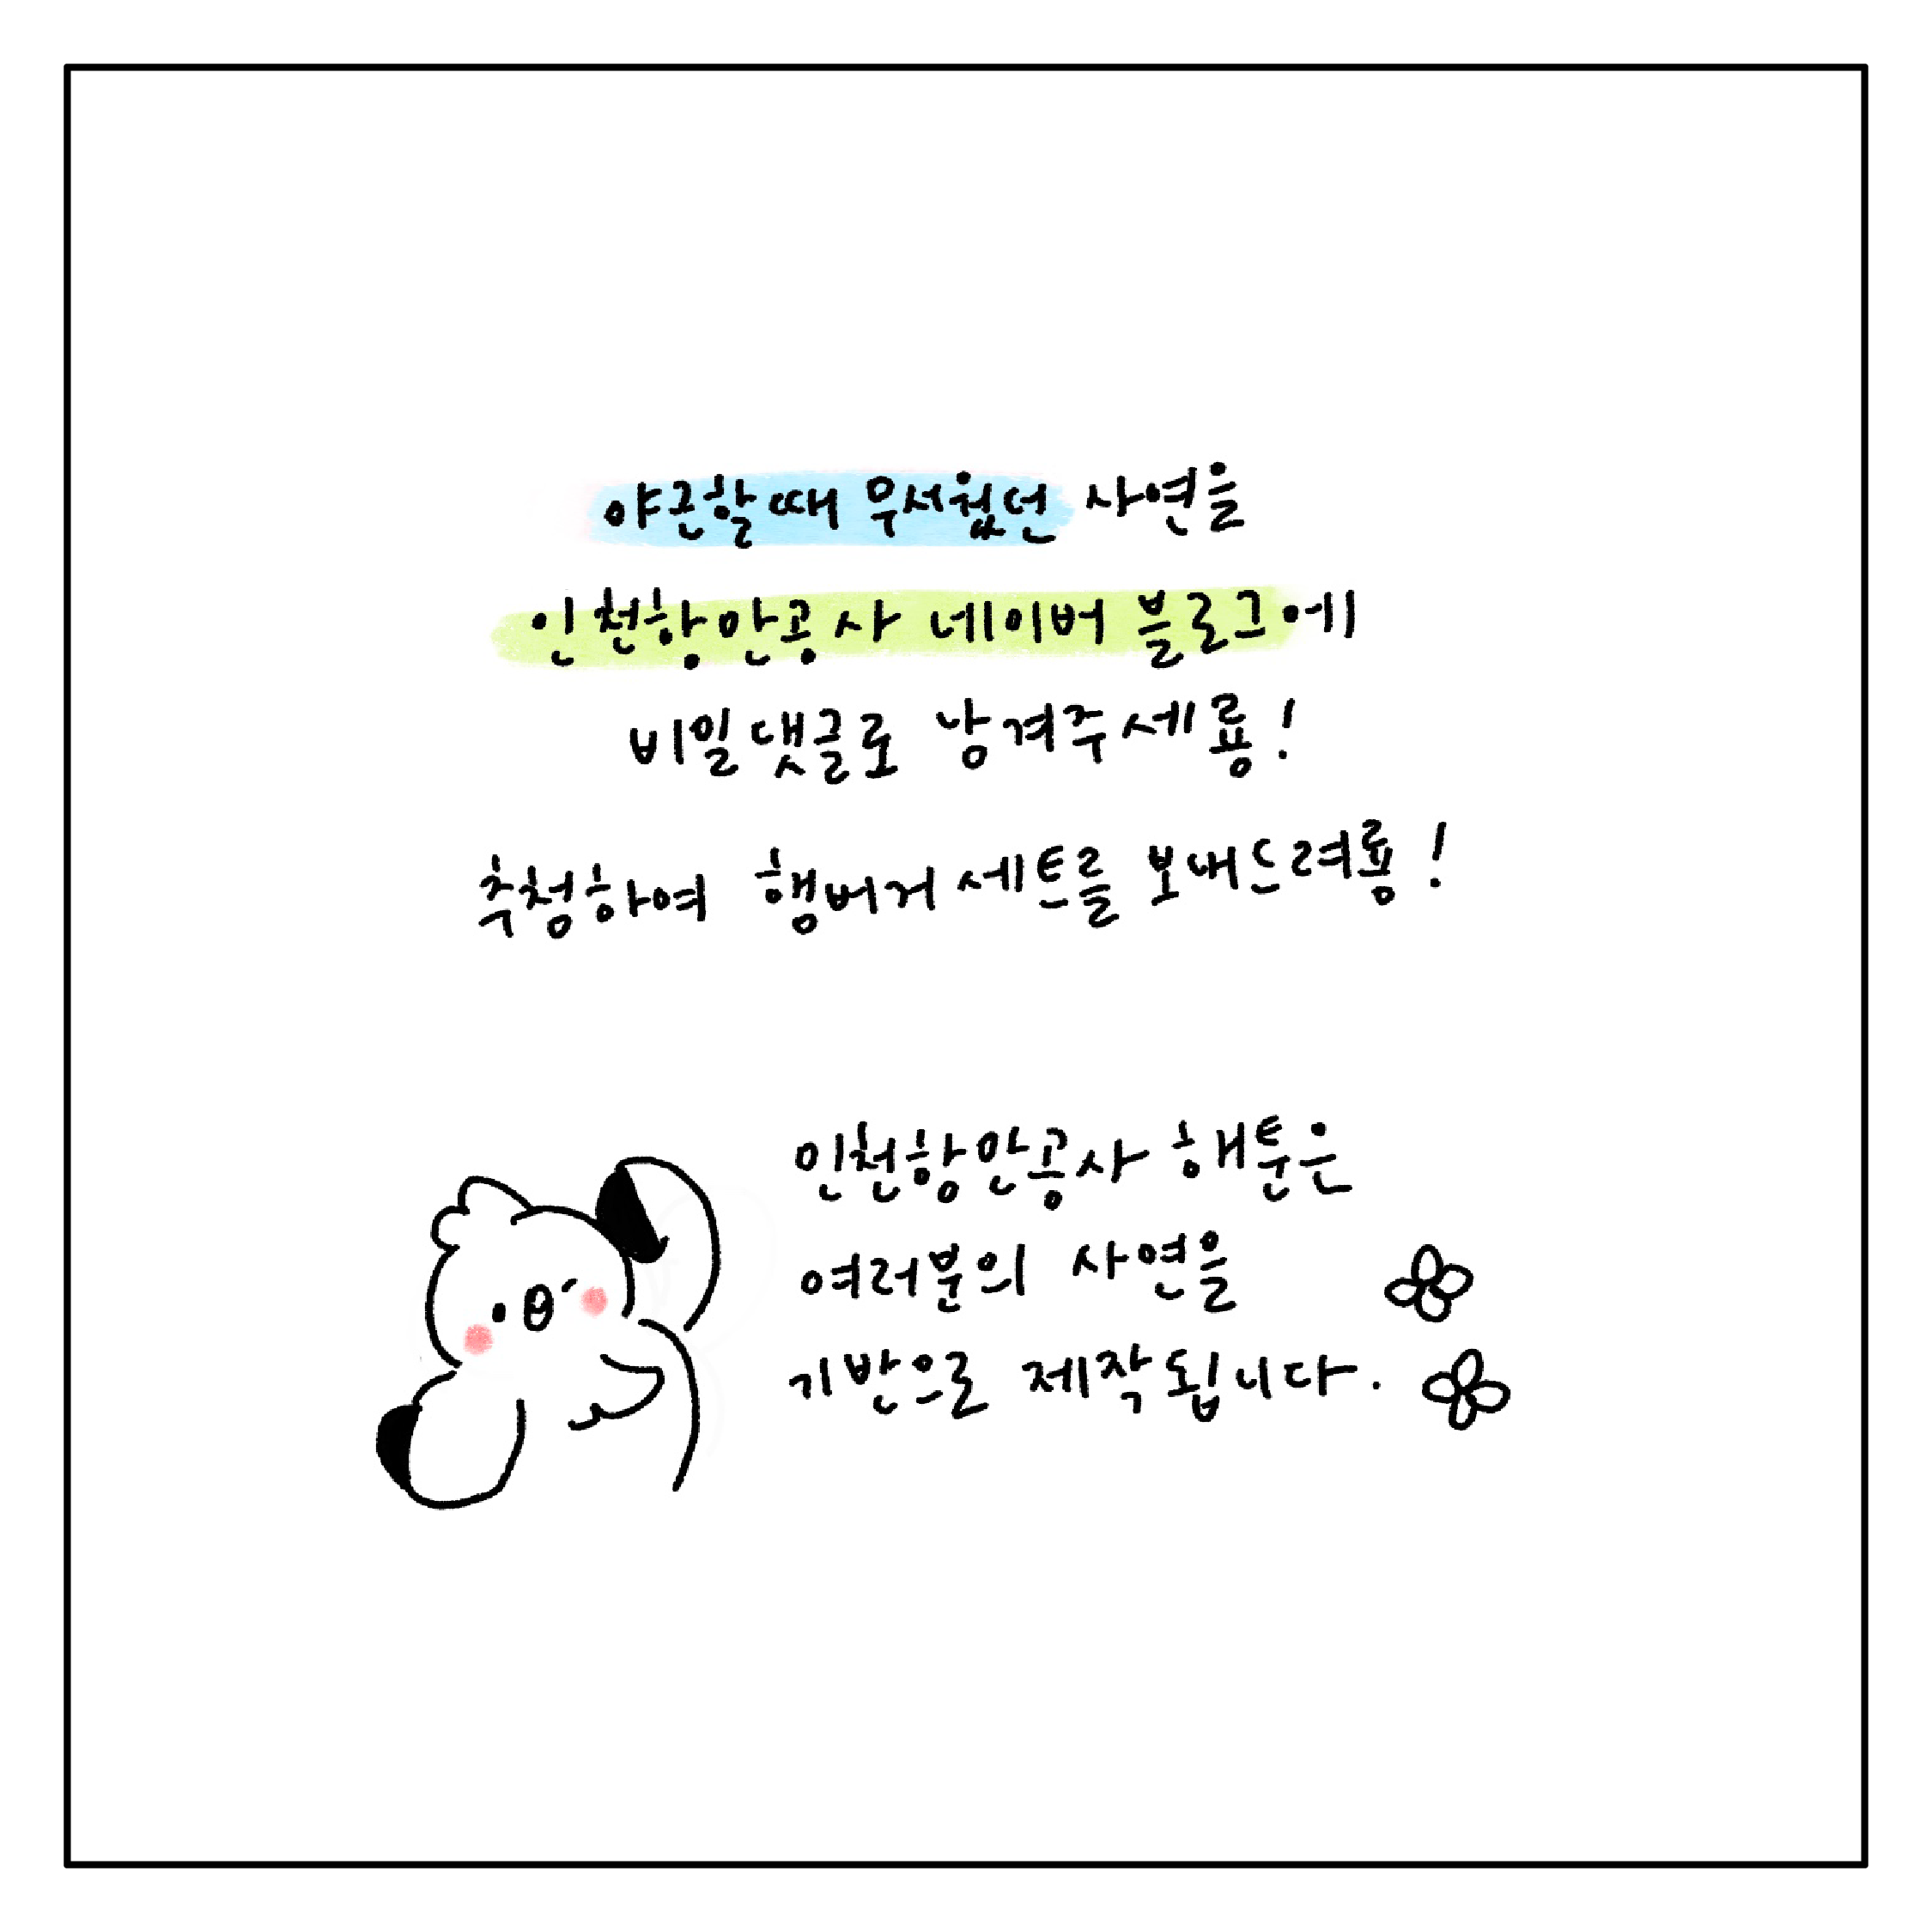 야근할때 무서웠던 사연을
인천항만공사 네이버 블로그에
비밀댓글로 남겨주세룡!
추첨하여 햄버거세트를 보내드려룡!
인천항만공사 해툰은
여러분의 사연을
기반으로 제작됩니다.